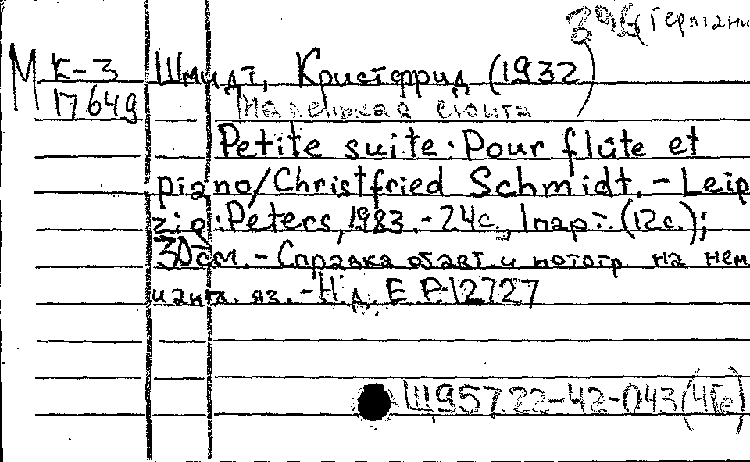 396 Германи
М К-3 Шмидт, Кристфрид (1932)
17649 Маленькая сюита
Petite suite: Pour flûte et
piano/Christfried Schmidt. - Leip
zig: Peters, 1983. - 24с., 1 пар. (12с.);
30см. - Справка об авт. и нотогр на нем
и англ. яз. - Н.д. Е.Р. 12727
Щ957.22-42-043(4Ге)